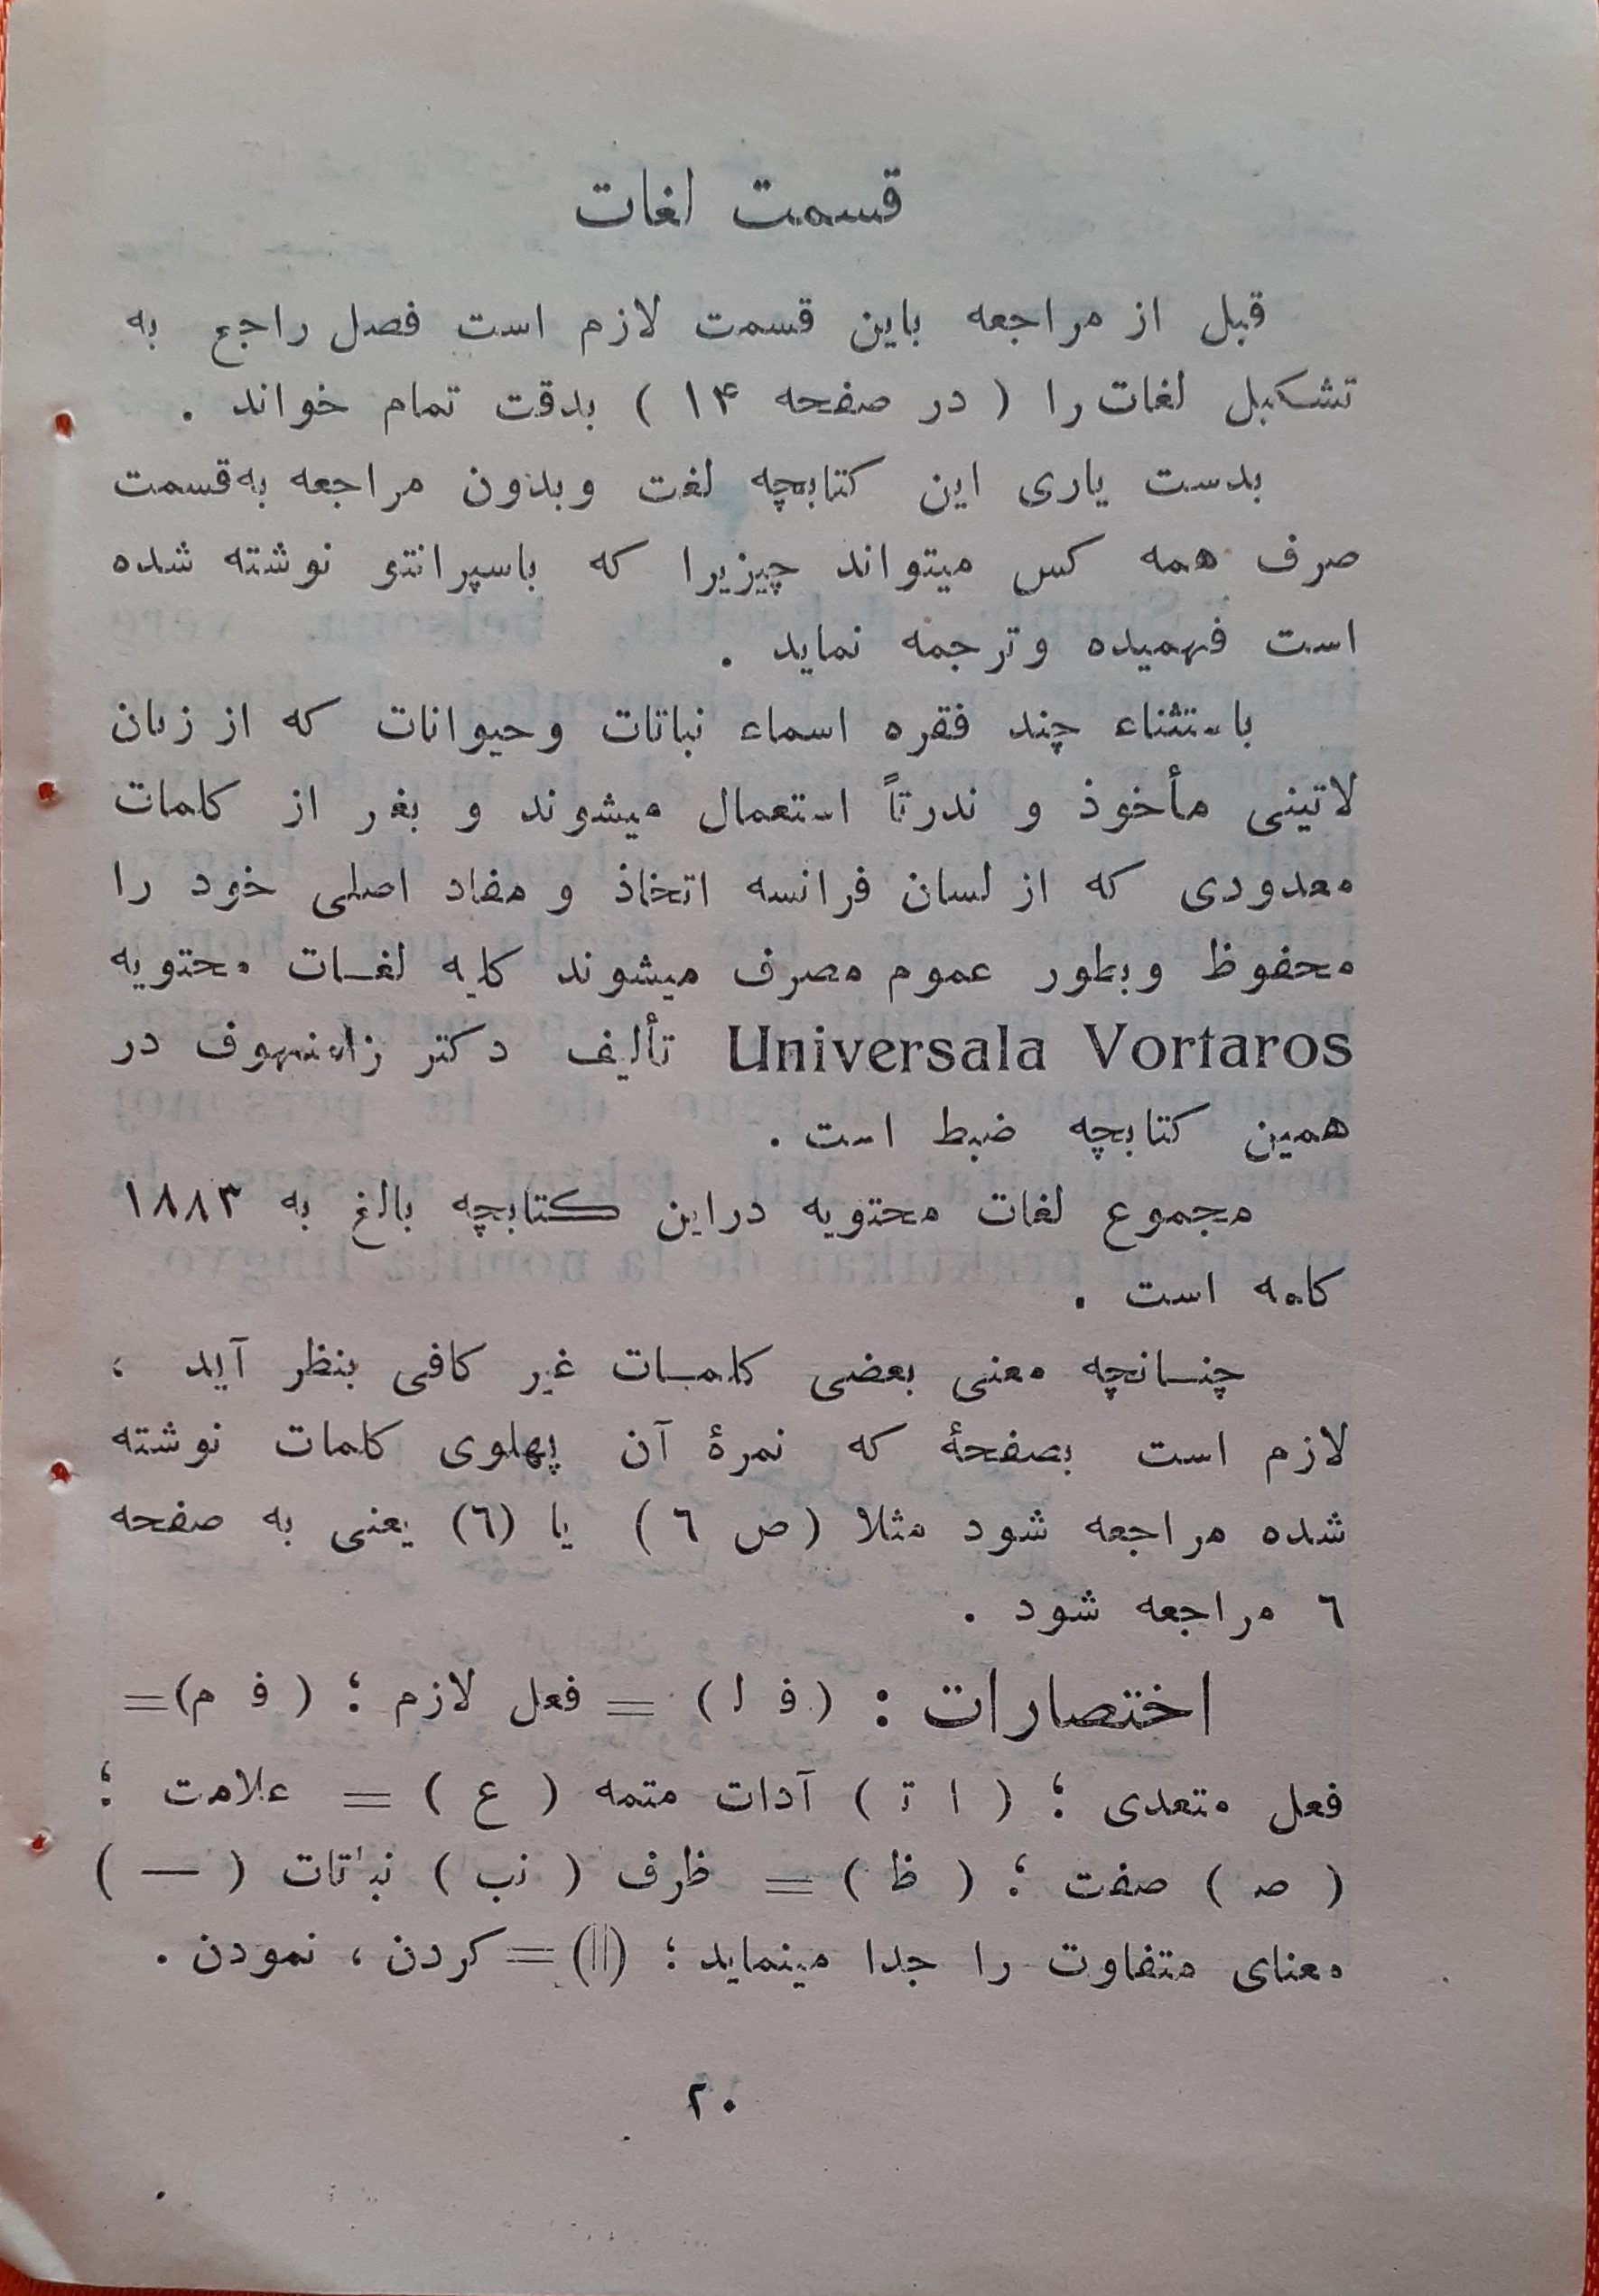 قسمت لغات
قبل از مراجعه باین قسمت لازم است فصل راجع به
تشکیل لغات را ( در صفحه ۱۴ ) بدقت تمام خواند .
بدست یاری این کتابچه لغت وبدون مراجعه به‌قسمت
صرف همه کس میتواند چیزیرا که باسپرانتو نوشته شده
است فهمیده وترجمه نماید .
باستثناء چند فقره اسماء نباتات وحیوانات که از زبان
لاتینی مأخوذ و ندرتاً استعمال میشوند و بغیر از کلمات
معدودی که از لسان فرانسه اتخاذ و مفاد اصلی خود را
محفوظ وبطور عموم مصرف میشوند کلیه لغات محتویه
Universala Vortaros تألیف دکتر زامنهوف در
همین کتابچه ضبط است .
مجموع لغات محتویه دراین کتابچه بالغ به ۱۸۸۳
کلمه است .
چنانچه معنی بعضی کلمات غیر کافی بنظر آید ،
لازم است بصفحهٔ که نمرهٔ آن پهلوی کلمات نوشته
شده مراجعه شود مثلا (ص ٦ ) یا (٦) یعنی به صفحه
٦ مراجعه شود .
اختصارات : ( ف ل ) = فعل لازم ؛ ( ف م)=
فعل متعدی ؛ ( ا ت ) آدات متمه ( ع ) = علامت ؛
( ص ) صفت ؛ ( ظ ) = ظرف ( نب ) نباتات ( — )
معنای متفاوت را جدا مینماید ؛ (||) = کردن ، نمودن .
۲۰